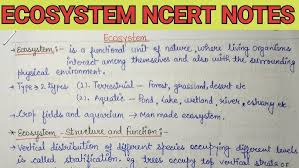 ECOSYSTEM NCERT NOTES
Ecosystem
→ Ecosystem :- is a functional unit of nature, where living organisms
interact among themselves and also with the surrounding
physical environment.
→ Type → 2 types (1). Terrestrial - Forest, grassland, desert etc
(2). Aquatic - Pond, lake, wetland, river, estuary etc.
→ Crop fields and aquarium → Man made ecosystem.
* Ecosystem - Structure and Function :-
→ Vertical distribution of different species occupying different levels
is called stratification. eg. trees occupy top vertical strata or